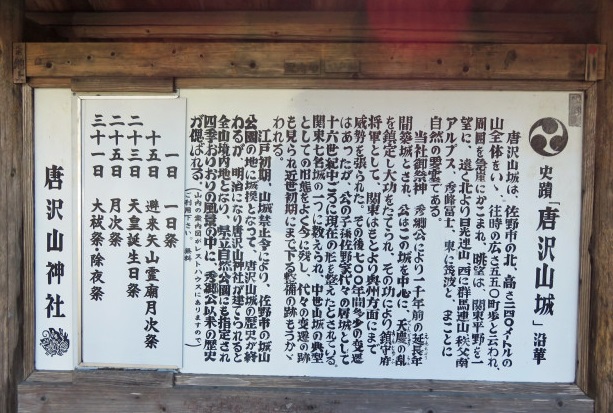 史蹟「唐沢山城」沿革
唐沢山城は、佐野市の北、高さ二四〇メートルの
山全体をいゝ、往時の広さ五五〇町歩と云われ、
周囲を急崖にかこまれ、眺望は、関東平野を一
望に、遠く北より日光連山、西に群馬連山秩父南
アルプス、秀峰富士、東に筑波と、まことに
自然の要害である。
当社御祭神、秀郷公により一千年前の延長年
間築城とされ、公はこの城を中心に、天慶の乱
を鎮定し大功をたてられ、その功により鎮守府
将軍として、関東はもとより奥州方面にまで
威勢を張られた。その後七〇〇年間多少の変遷
はあったが、公の子孫佐野家代々の居城として
十六世紀中ごろに現在の形を整えたとされている。
関東七名城の一つに数えられ、中世山城の典型
としての形態をよく今に残し、代々の変遷の跡
も見られ近世初期にまで下る修補の跡もうかゞ
われる。
江戸初期、山城禁止令により、佐野市の城山
公園の地に城換となって、唐沢山城の歴史が終
わるが、明治になり唐沢山神社が建てられると
全山境内地となり、県立自然公園にも指定され
四季おりおりの風趣の中に、秀郷公以来の歴史
が偲ばれる。
(山内の案内図がレストハウスにありますので)
(ご利用下さい。 無料)
一日 一日祭
十五日 避来矢山霊廟月次祭
二十三日 天皇誕生日祭
二十五日 月次祭
三十一日 大祓祭・除夜祭
唐沢山神社